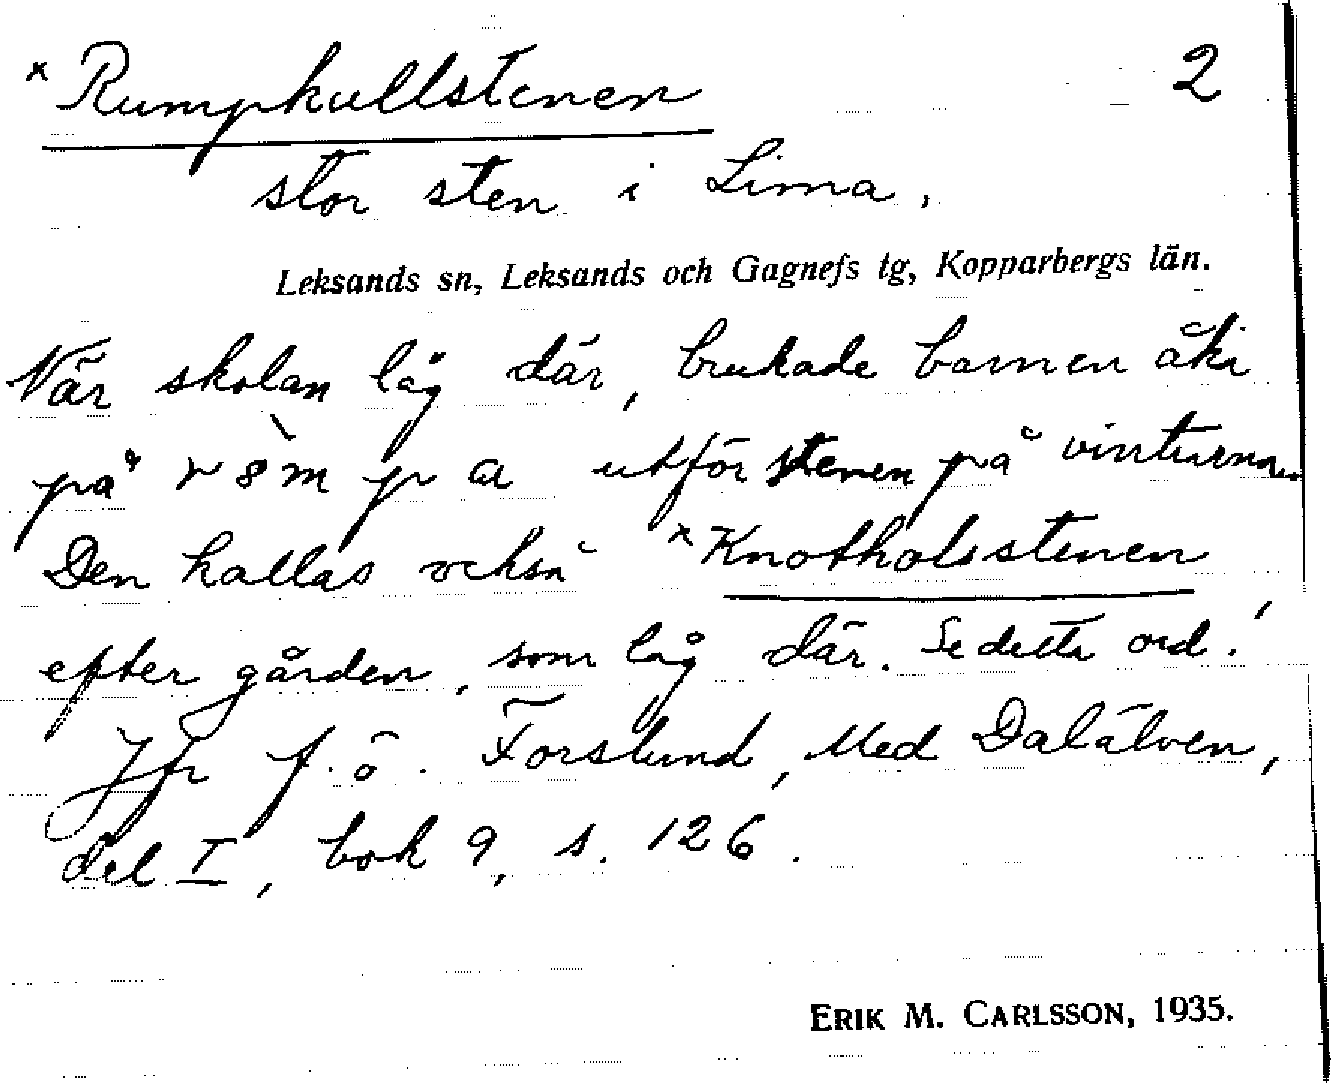 × Rumpkullstenen 2
stor sten i Lima,
Leksands sn, Leksands och Gagnefs tg, Kopparbergs län.
När skolan låg där, brukade barnen åka
på utför stenen på vintrarna.
Den kallas också × Knotholsstenen
efter gården, som låg där. Se detta ord!
Jfr f.ö. Forslund, Med Dalälven,
del I, bok 9, s. 126.
ERIK M. CARLSSON, 1935.